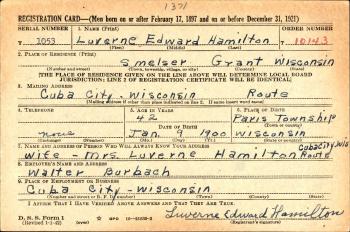 1371
REGISTRATION CARD—(Men born on or after February 17, 1897 and on or before December 31, 1921)
SERIAL NUMBER 1. NAME (Print) ORDER NUMBER
T 1053 Luverne Edward Hamilton 10143
(First) (Middle) (Last)
2. PLACE OF RESIDENCE (Print)
Smelser Grant Wisconsin
(Number and street) (Town, township, village, or city) (County) (State)
[THE PLACE OF RESIDENCE GIVEN ON THE LINE ABOVE WILL DETERMINE LOCAL BOARD
JURISDICTION; LINE 2 OF REGISTRATION CERTIFICATE WILL BE IDENTICAL]
3. MAILING ADDRESS
Cuba City - Wisconsin Route
[Mailing address if other than place indicated on line 2. If same insert word same]
4. TELEPHONE 5. AGE IN YEARS 6. PLACE OF BIRTH
42 Paris Township
DATE OF BIRTH (Town or county)
none Jan. 9 1900 Wisconsin
(Exchange) (Number) (Mo.) (Day) (Yr.) (State or country)
7. NAME AND ADDRESS OF PERSON WHO WILL ALWAYS KNOW YOUR ADDRESS Cuba City Wis
Wife - Mrs. Luverne Hamilton Route
8. EMPLOYER'S NAME AND ADDRESS
Walter Burbach
9. PLACE OF EMPLOYMENT OR BUSINESS
Cuba City - Wisconsin
(Number and street or R. F. D. number) (Town) (County) (State)
I AFFIRM THAT I HAVE VERIFIED ABOVE ANSWERS AND THAT THEY ARE TRUE.
D. S. S. Form 1
(Revised 1-1-42) GPO Luverne Edward Hamilton
(over) (Registrant's signature)